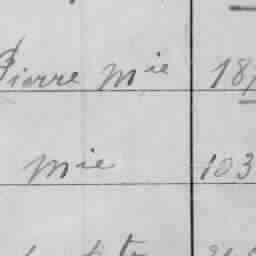 Pierre Mie 187
Mie 103